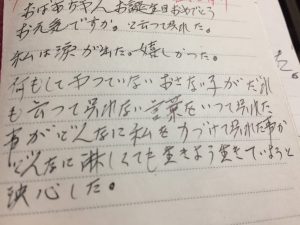 おばあちゃんお誕生日おめでとう
お元気ですか。と云って呉れた。
私は涙が出た。嬉しかった。
何もしてやっていないおさない子がだれ
も云って呉れない言葉をいって呉れた
事がどんなに私を力づけて呉れた事か
どんなに淋しくても生きよう生きていようと
決心した。